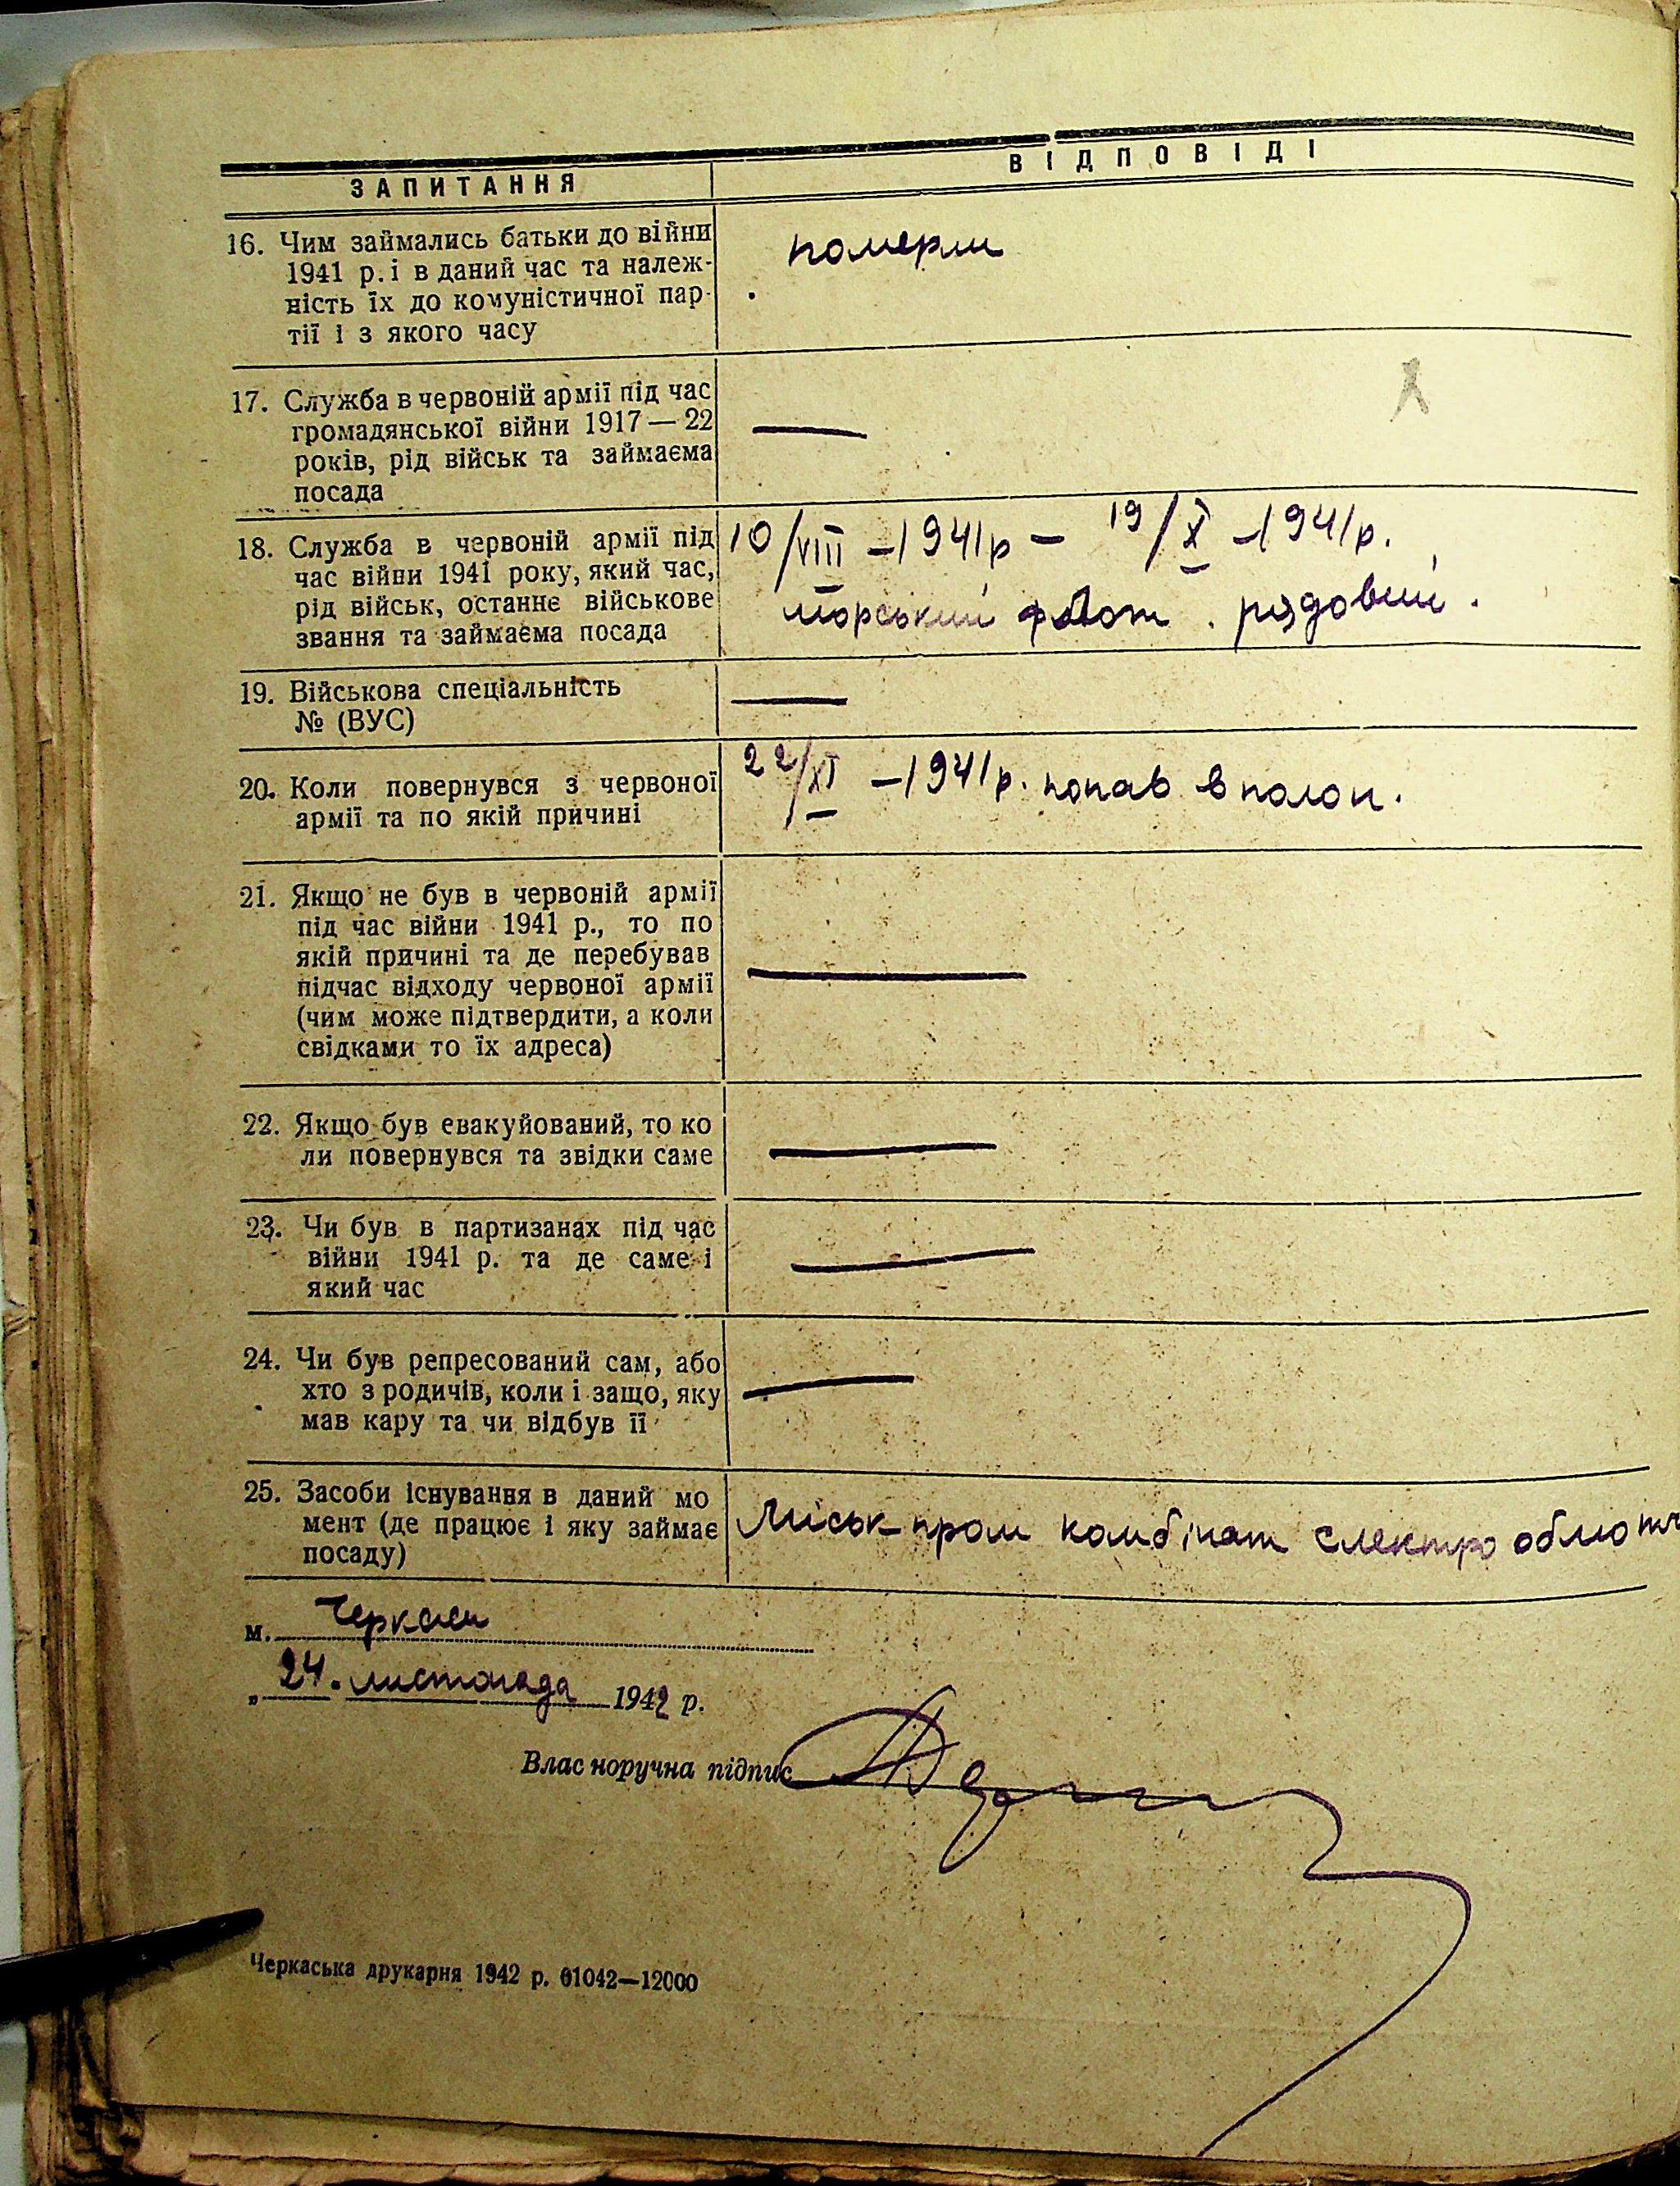 ЗАПИТАННЯ
ВІДПОВІДІ
16. Чим займались батьки до війни
1941 р. і в даний час та належ-
ність їх до комуністичної пар-
тії і з якого часу
померли
17. Служба в червоній армії під час
громадянської війни 1917—22
років, рід військ та займаєма
посада
—
18. Служба в червоній армії під
час війни 1941 року, який час,
рід військ, останнє військове
звання та займаєма посада
10/VIII – 1941р – 19/X – 1941р.
морський флот. рядовий.
19. Військова спеціальність
№ (ВУС)
—
20. Коли повернувся з червоної
армії та по якій причині
22/XI – 1941р. попав в полон.
21. Якщо не був в червоній армії
під час війни 1941 р., то по
якій причині та де перебував
підчас відходу червоної армії
(чим може підтвердити, а коли
свідками то їх адреса)
—
22. Якщо був евакуйований, то ко
ли повернувся та звідки саме
—
23. Чи був в партизанах під час
війни 1941 р. та де саме і
який час
—
24. Чи був репресований сам, або
хто з родичів, коли і защо, яку
мав кару та чи відбув її
—
25. Засоби існування в даний мо
мент (де працює і яку займає
посаду)
Міськ пром комбінат електрообмотч
м. Черкаси
„ 24. листопада 1942 р.
Власноручна підпис
Черкаська друкарня 1942 р. 01042—12000